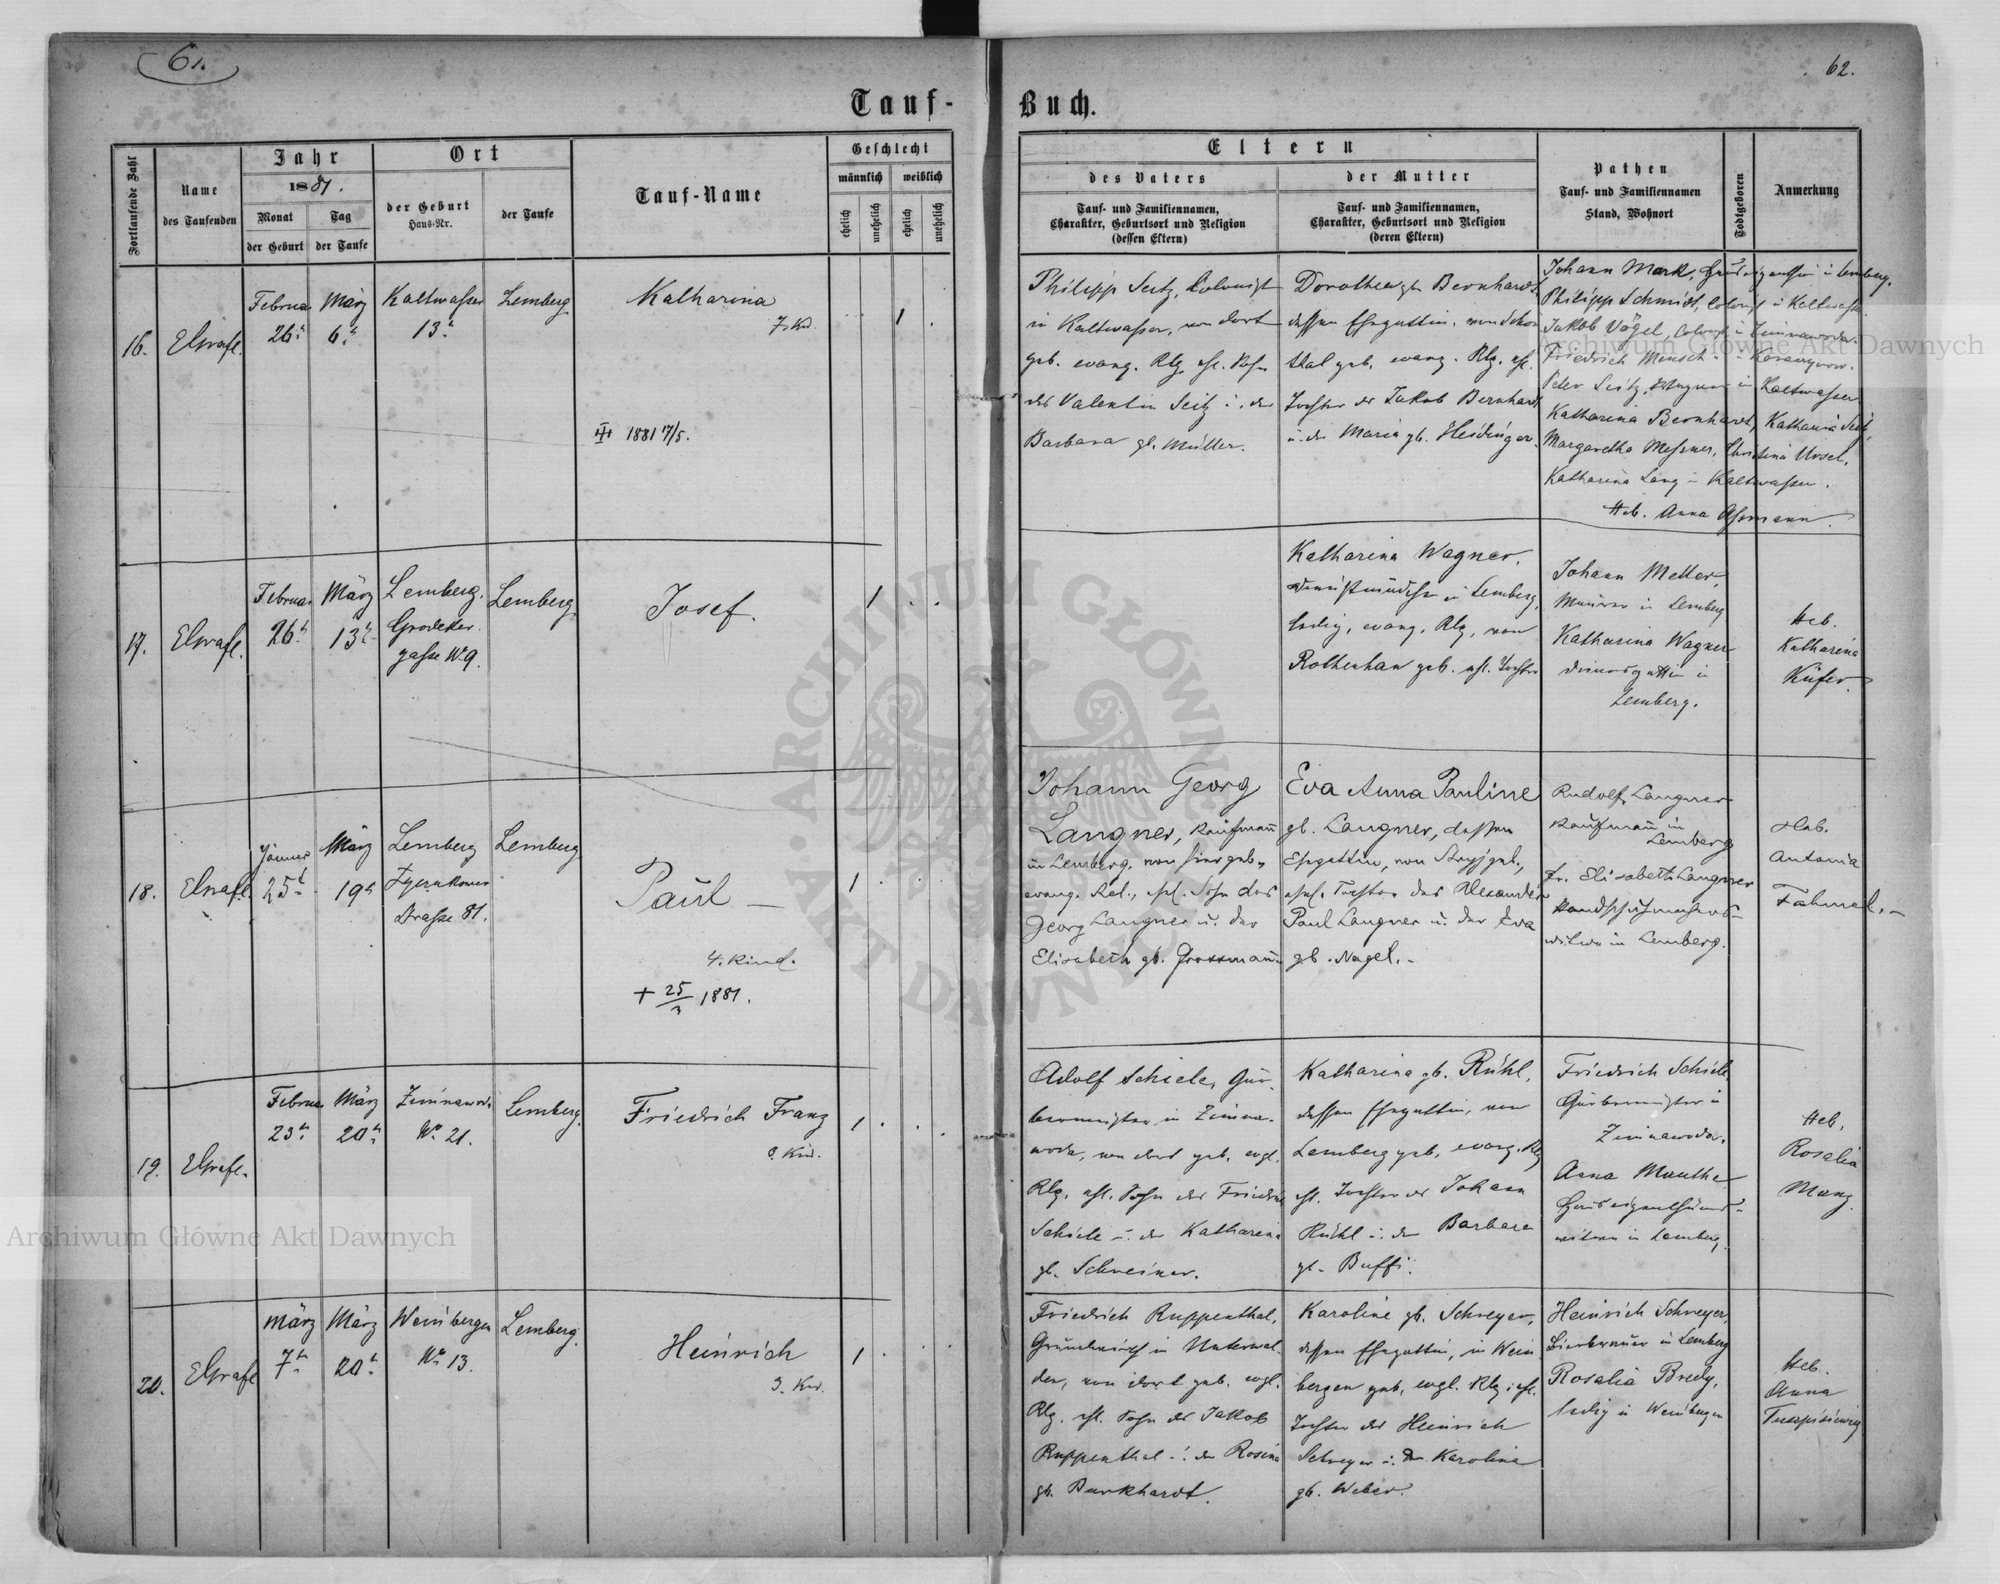 61.
62.
Tauf-
Buch.
Fortlaufende Zahl
Name
des Taufenden
Jahr
1881.
Monat
der Geburt
Tag
der Taufe
Ort
der Geburt
Haus-Nr.
der Taufe
Tauf-Name
Geschlecht
männlich
weiblich
ehelich
unehelich
ehelich
unehelich
Eltern
des Vaters
Tauf- und Familiennamen,
Charakter, Geburtsort und Religion
(dessen Eltern)
der Mutter
Tauf- und Familiennamen,
Charakter, Geburtsort und Religion
(deren Eltern)
Pathen
Tauf- und Familiennamen
Stand, Wohnort
Todtgeboren
Anmerkung
16.
Februar
26
März
6
Kaltwasser
13
Lemberg
Katharina
7. Kd.
1881 7/5.
1
Philipp Seitz, Colonist
in Kaltwasser, von dort
geb. evang. Rlg. ehl. Sohn
des Valentin Seitz u. der
Barbara gb. Müller.
Dorothea gb. Bernhardt
dessen Ehegattin, von Schön
thal geb. evang. Rlg. ehl.
Tochter des Jakob Bernhardt
u. der Maria gb. Heidinger.
Johann Mark, in Lemberg,
Philipp Schmidt, Colonist in Kaltwasser
Jakob Vögel, Colonist in Zimnawoda.
Friedrich Mensch in
Peter Seitz, in Kaltwasser
Katharina Bernhardt, Katharina Seitz,
Margaretha Messner, Christina Ursel,
Katharina Lang in Kaltwasser.
Heb. Anna Assmann.
17.
Februar
26
März
13
Lemberg.
Grodeker
gasse No 9.
Lemberg
Josef.
1
Katharina Wagner,
in Lemberg,
ledig, evang. Rlg, von
Rottenhan geb. ehl. Tochter
Johann Metter,
Maurer in Lemberg
Katharina Wagner
in
Lemberg.
Heb.
Katharina
Küfer.
18.
Jänner
25
März
19
Lemberg
Strasse 81.
Lemberg
Paul
4. Kind.
+ 25/3 1881.
1
Johann Georg
Langner, Kaufmann
in Lemberg, von hier geb.,
evang. Rel., ehl. Sohn des
Georg Langner u. der
Elisabeth gb. Grossmann
Eva Anna Pauline
gb. Langner, dessen
Ehegattin, von Stryj geb.,
ehel. Tochter des Alexander
Paul Langner u. der Eva
gb. Nagel.
Rudolf Langner
Kaufmann in
Lemberg
Fr. Elisabeth Langner
Handschuhmachers-
witwe in Lemberg.
Heb.
Antonia
Fahnel.
19.
Februar
23
März
20
Zimnawoda
No 21.
Lemberg.
Friedrich Franz
Kind.
1
Adolf Schiele, Gär-
bermeister in Zimna-
woda, von dort geb. evgl.
Rlg. ehl. Sohn des Friedrich
Schiele u. der Katharina
gb. Schreiner.
Katharina gb. Rühl,
dessen Ehegattin, von
Lemberg geb, evang. Rlg
ehl. Tochter des Johann
Rühl u. der Barbara
gb. Buffi.
Friedrich Schiele,
Gärbermeister in
Zimnawoda.
Anna Mauthe
Hauseigenthümers-
witwe in Lemberg.
Heb.
Rosalia
Manz.
20.
März
7
März
20
Weinbergen
No 13.
Lemberg.
Heinrich
3. Kd.
1
Friedrich Ruppenthal,
Grundwirth in Unterwal-
den, von dort geb. evgl.
Rlg. ehl. Sohn des Jakob
Ruppenthal u. der Rosina
gb. Burkhardt.
Karoline gb. Schreyer,
dessen Ehegattin, in Wein
bergen geb, evgl. Rlg. ehl.
Tochter des Heinrich
Schreyer u. der Karolina
gb. Weber.
Heinrich Schreyer,
Bierbrauer in Lemberg
Rosalia Bredy,
ledig in Weinbergen
Heb.
Anna
Archiwum Główne Akt Dawnych
Archiwum Główne Akt Dawnych
ARCHIWUM GŁÓWNE AKT DAWNYCH